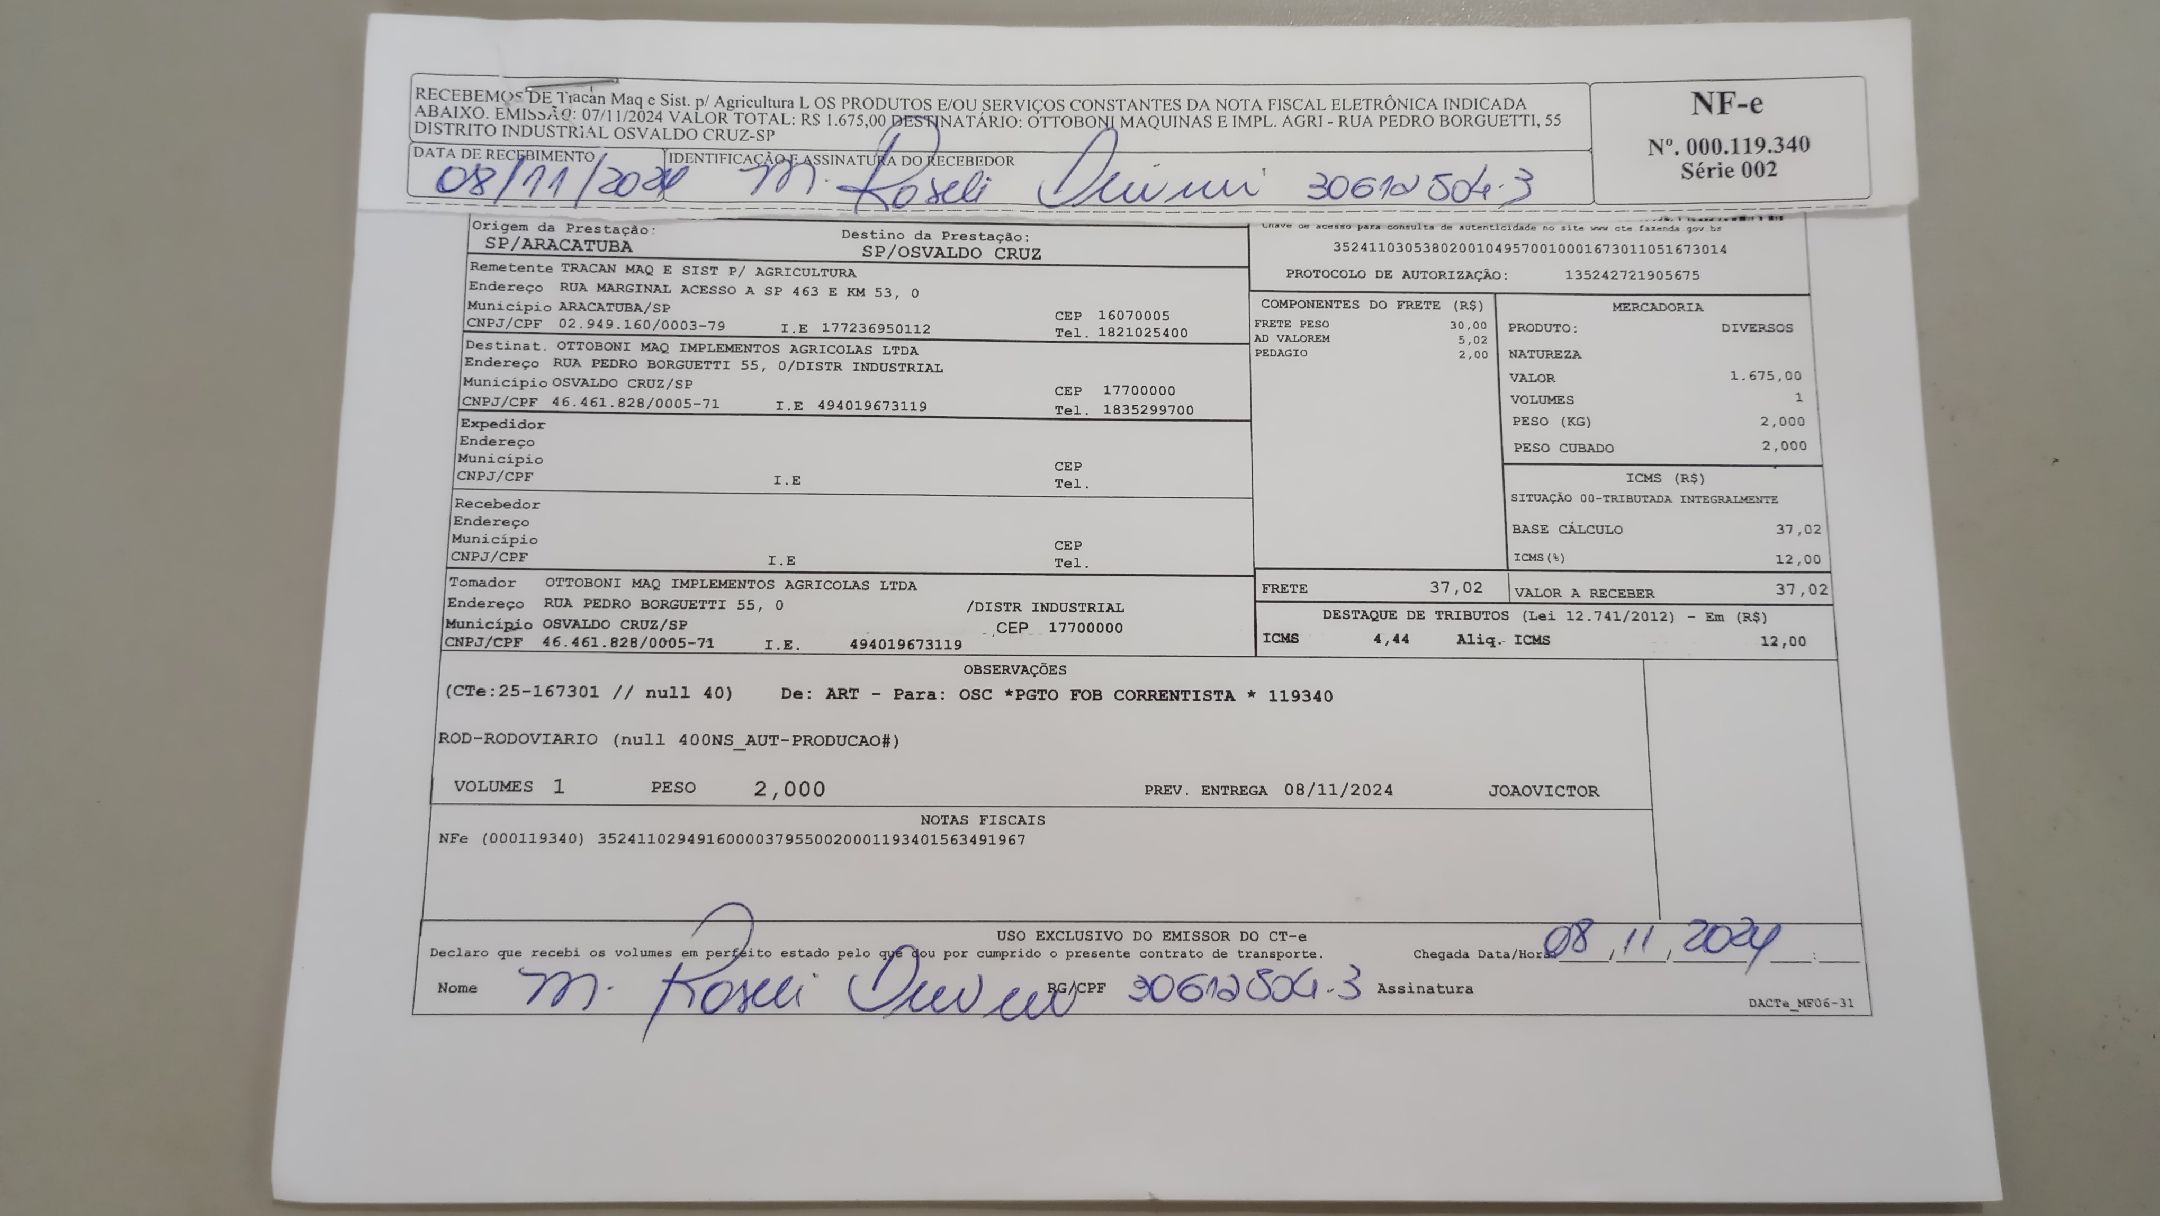 RECEBEMOS DE Tracan Maq e Sist. p/ Agricultura L OS PRODUTOS E/OU SERVIÇOS CONSTANTES DA NOTA FISCAL ELETRÔNICA INDICADA
ABAIXO. EMISSÃO: 07/11/2024 VALOR TOTAL: R$ 1.675,00 DESTINATÁRIO: OTTOBONI MAQUINAS E IMPL. AGRI - RUA PEDRO BORGUETTI, 55
DISTRITO INDUSTRIAL OSVALDO CRUZ-SP
NF-e
Nº. 000.119.340
Série 002
DATA DE RECEBIMENTO IDENTIFICAÇÃO E ASSINATURA DO RECEBEDOR
08/11/2024 M. Roseli 30612504-3
Origem da Prestação: Destino da Prestação:
SP/ARACATUBA SP/OSVALDO CRUZ
Chave de acesso para consulta de autenticidade no site www cte fazenda gov.br
35241103053802001049570010001673011051673014
PROTOCOLO DE AUTORIZAÇÃO: 135242721905675
Remetente TRACAN MAQ E SIST P/ AGRICULTURA
Endereço RUA MARGINAL ACESSO A SP 463 E KM 53, 0
Município ARACATUBA/SP CEP 16070005
CNPJ/CPF 02.949.160/0003-79 I.E 177236950112 Tel. 1821025400
Destinat. OTTOBONI MAQ IMPLEMENTOS AGRICOLAS LTDA
Endereço RUA PEDRO BORGUETTI 55, 0/DISTR INDUSTRIAL
Município OSVALDO CRUZ/SP CEP 17700000
CNPJ/CPF 46.461.828/0005-71 I.E 494019673119 Tel. 1835299700
Expedidor
Endereço
Município CEP
CNPJ/CPF I.E Tel.
Recebedor
Endereço
Município CEP
CNPJ/CPF I.E Tel.
Tomador OTTOBONI MAQ IMPLEMENTOS AGRICOLAS LTDA
Endereço RUA PEDRO BORGUETTI 55, 0 /DISTR INDUSTRIAL
Município OSVALDO CRUZ/SP CEP 17700000
CNPJ/CPF 46.461.828/0005-71 I.E. 494019673119
COMPONENTES DO FRETE (R$)
FRETE PESO 30,00
AD VALOREM 5,02
PEDAGIO 2,00
MERCADORIA
PRODUTO: DIVERSOS
NATUREZA
VALOR 1.675,00
VOLUMES 1
PESO (KG) 2,000
PESO CUBADO 2,000
ICMS (R$)
SITUAÇÃO 00-TRIBUTADA INTEGRALMENTE
BASE CÁLCULO 37,02
ICMS(%) 12,00
FRETE 37,02 VALOR A RECEBER 37,02
DESTAQUE DE TRIBUTOS (Lei 12.741/2012) - Em (R$)
ICMS 4,44 Aliq. ICMS 12,00
OBSERVAÇÕES
(CTe:25-167301 // null 40) De: ART - Para: OSC *PGTO FOB CORRENTISTA * 119340
ROD-RODOVIARIO (null 400NS_AUT-PRODUCAO#)
VOLUMES 1 PESO 2,000 PREV. ENTREGA 08/11/2024 JOAOVICTOR
NOTAS FISCAIS
NFe (000119340) 35241102949160000379550020001193401563491967
USO EXCLUSIVO DO EMISSOR DO CT-e
Declaro que recebi os volumes em perfeito estado pelo que dou por cumprido o presente contrato de transporte. Chegada Data/Hora 08/11/2024 :
Nome M. Roseli RG/CPF 30612504-3 Assinatura
DACTe_MF06-31